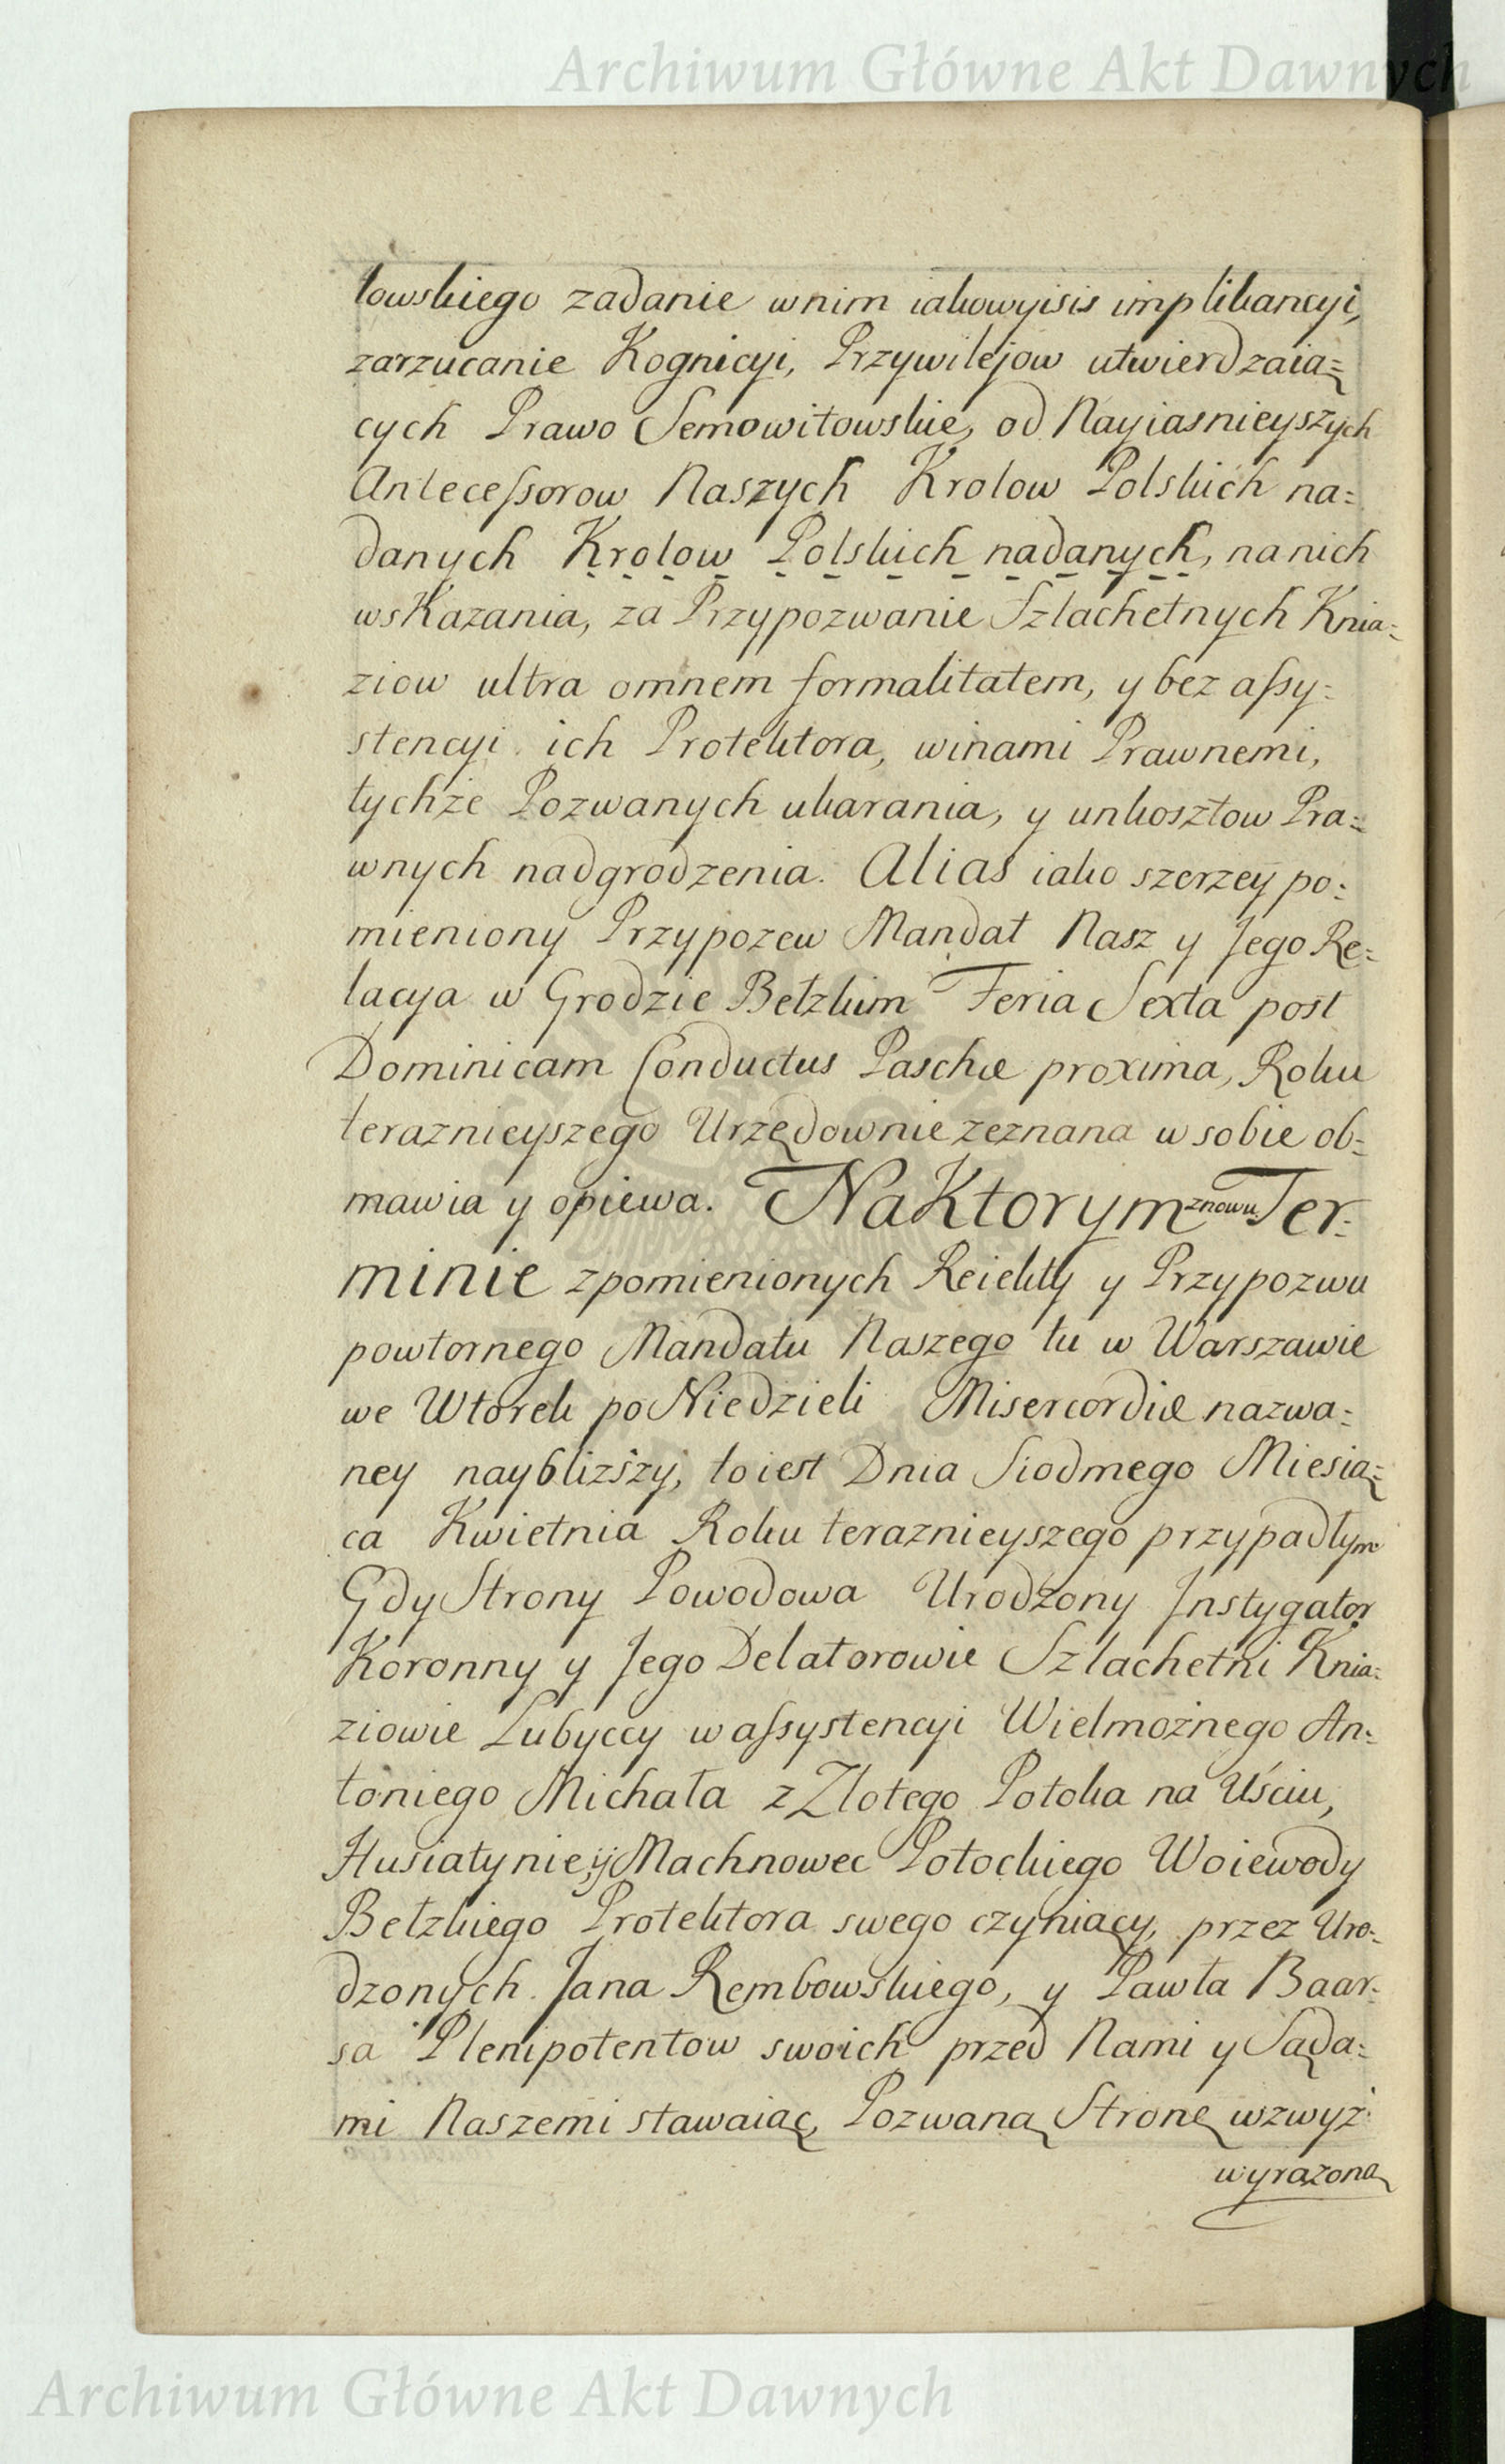 Archiwum Główne Akt Dawnych
towskiego zadanie wnim iakowyisis implikancyi,
zarzucanie Kognicyi, Przywilejow utwierdzaią=
cych Prawo Semowitowskie, od Nayiasnieyszych
Antecessorow Naszych Krolow Polskich na=
danych Krolow Polskich nadanych, na nich
wsKazania, za Przypozwanie Szlachetnych Knia=
ziow ultra omnem formalitatem, y bez assy=
stencyi ich Protektora, winami Prawnemi,
tychże Pozwanych ukarania, y unkosztow Pra=
wnych nadgrodzenia. Alias iako szerzey po=
mieniony Przypozew Mandat Nasz y Jego Re=
lacya w Grodzie Bełzkim Feria Sexta post
Dominicam Conductus Paschæ proxima, Roku
teraznieyszego Urzędownie zeznana w sobie ob=
mawia y opiewa. NaKtorym znowu Ter=
minie zpomienionych Reiekty y Przypozwu
powtornego Mandatu Naszego tu w Warszawie
we Wtorek po Niedzieli Misercordiæ nazwa=
ney naybliższy, to iest Dnia Siodmego Miesią=
ca Kwietnia Roku teraznieyszego przypadłym
Gdy Strony Powodowa Urodzony Instygator
Koronny y Jego Delatorowie Szlachetni Knia=
ziowie Lubyccy w assystencyi Wielmożnego An=
toniego Michała z Zlotego Potoka na Uściu,
Husiatynie, y Machnowec Potockiego Woiewody
Bełzkiego Protektora swego czyniący, przez Uro=
dzonych Jana Rembowskiego, y Pawła Baar=
sa Plenipotentow swoich przed Nami y Sąda=
mi Naszemi stawaiąc, Pozwaną Stronę wzwyż
wyrazoną
Archiwum Główne Akt Dawnych